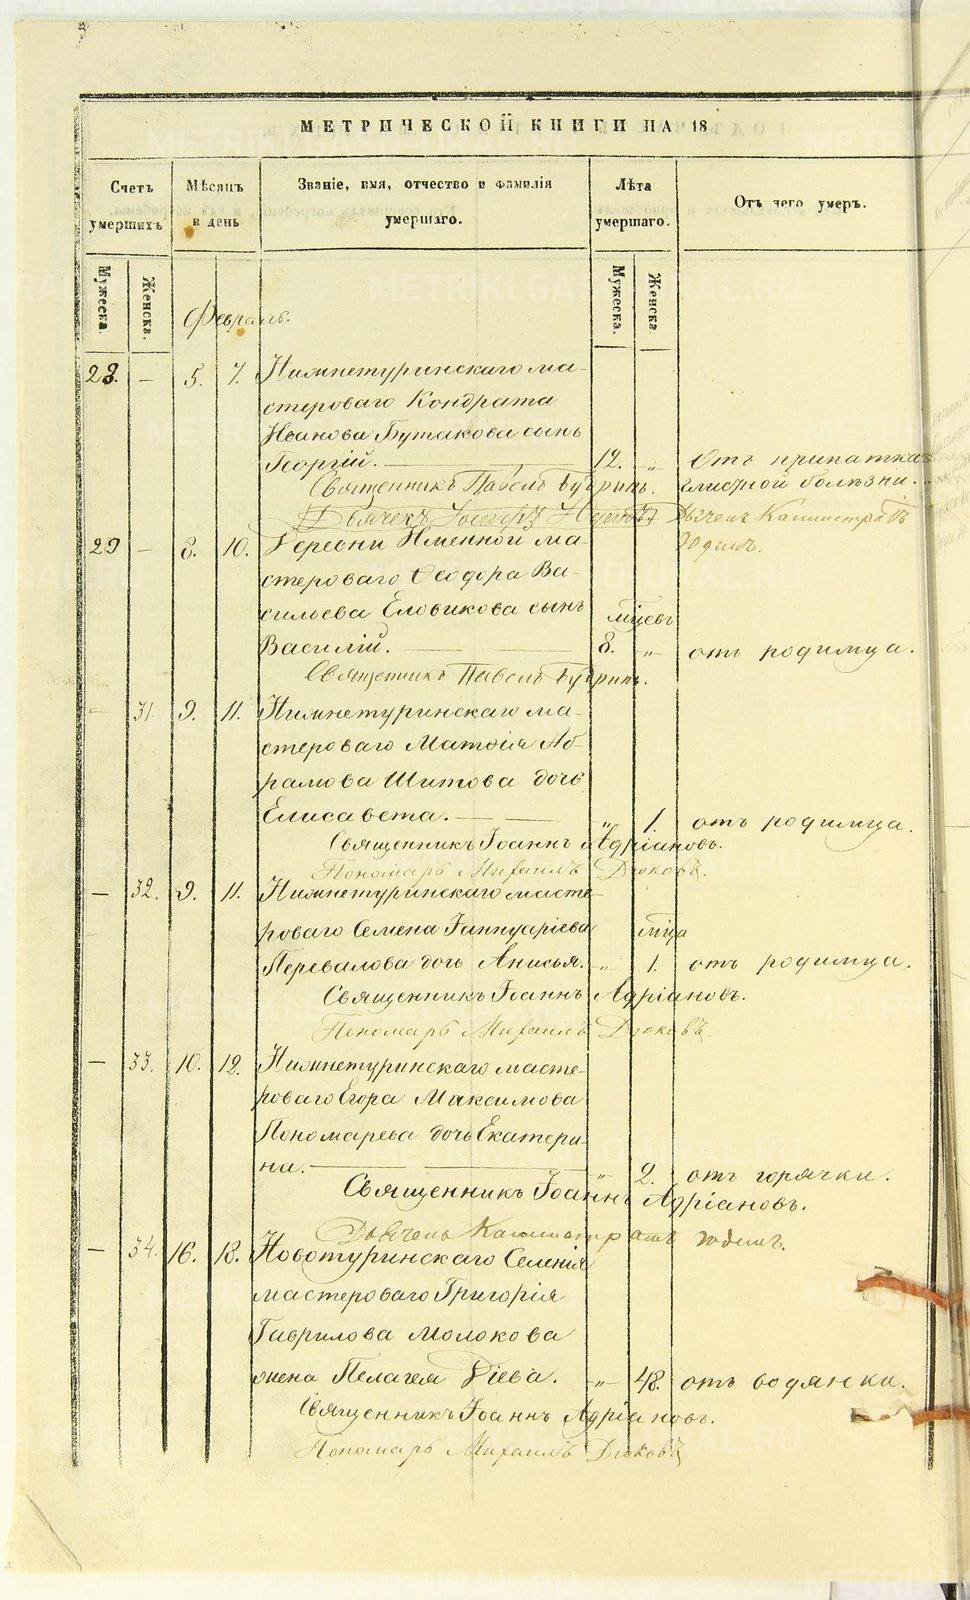 МЕТРИЧЕСКОЙ КНИГИ НА 18
Счетъ умершихъ
Мѣсяцъ и день
Званіе, имя, отчество и фамилія умершаго.
Лѣта умершаго.
Отъ чего умеръ.
Мужеска.
Женска.
Мужеска.
Женска.
Февраль.
28. — 5. 7. Нижнетуринскаго ма-
стероваго Кондрата
Иванова Бутакова сынъ
Георгій. 12. „ Отъ припатка
Священникъ Павелъ Бубринъ. глистной болѣзни.
Дьячекъ Дьячекъ Калистратъ
29 — 8. 10. Деревни Именной ма-
стероваго Ѳеодора Ва-
сильева Еловикова сынъ мѣсцевъ
Василій. 8. „ отъ родимца.
Священникъ Павелъ Бубринъ.
— 31. 9. 11. Нижнетуринскаго ма-
стероваго Матѳія Аб-
рамова Шитова дочь
Елисавета. „ 1. отъ родимца.
Священникъ Іоаннъ Адріановъ.
Пономарь Михаилъ Дюковъ.
— 32. 9. 11. Нижнетуринскаго масте-
роваго Семена Іаннуаріева мѣца
Перевалова дочь Анисья. „ 1. отъ родимца.
Священникъ Іоаннъ Адріановъ.
Пономарь Михаилъ Дюковъ.
— 33. 10. 12. Нижнетуринскаго масте-
роваго Егора Максимова
Пономарева дочь Екатери-
на. „ 2. отъ горячки.
Священникъ Іоаннъ Адріановъ.
Дьячекъ Калистратъ
— 34. 16. 18. Новотуринскаго Селенія
мастероваго Григорія
Гаврилова Молокова
жена Пелагея Діева. „ 48. отъ водянки.
Священникъ Іоаннъ Адріановъ.
Пономарь Михаилъ Дюковъ